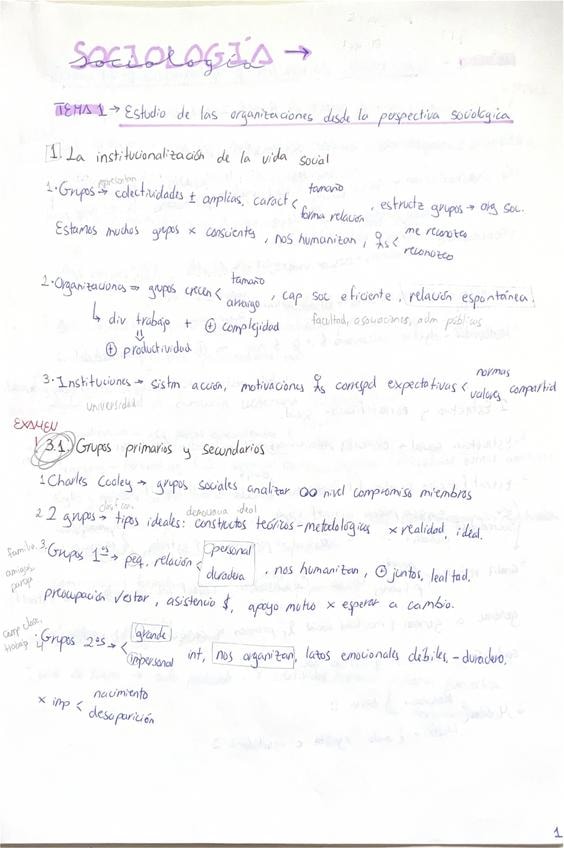 SOCIOLOGÍA →
Sociología
TEMA 1 → Estudio de las organizaciones desde la perspectiva sociológica
1. La institucionalización de la vida social
representan
1. Grupos → colectividades ± amplias, caract < tamaño
forma relación , estructz grupos → org soc.
Estamos muchos grupos × conscientes, nos humanizan, < me reconozco
reconozco
2. Organizaciones ⇒ grupos crecen < tamaño
arraigo , cap soc eficiente, relación espontánea.
↳ div trabajo + ⊕ complejidad
facultad, asociaciones, adm públicas
⇓
⊕ productividad
3. Instituciones → sistm acción, motivaciones correspd expectativas < normas
valores compartid
universidad
EXAMEN
! 3.1. Grupos primarios y secundarios
1 Charles Cooley → grupos sociales analizar nivel compromiso miembros
clasifican
denomina ideal
2 2 grupos → tipos ideales: constructos teóricos-metodológicos × realidad, ideal.
familia,
amigos,
pareja
3. Grupos 1os → peq. relación < personal
duradera , nos humanizan, ⊕ juntos, lealtad.
preocupación , asistencia $, apoyo mutuo × esperar a cambio.
comp clase,
trabajo
· Grupos 2os → < grande
impersonal int, nos organizan, lazos emocionales débiles, - duradero,
× imp < nacimiento
desaparición
1